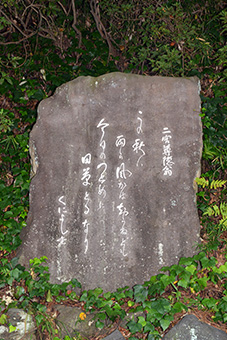 二宮尊徳翁
この秋は
雨か風かは知らねども
今日のつとめに
田草とるなり